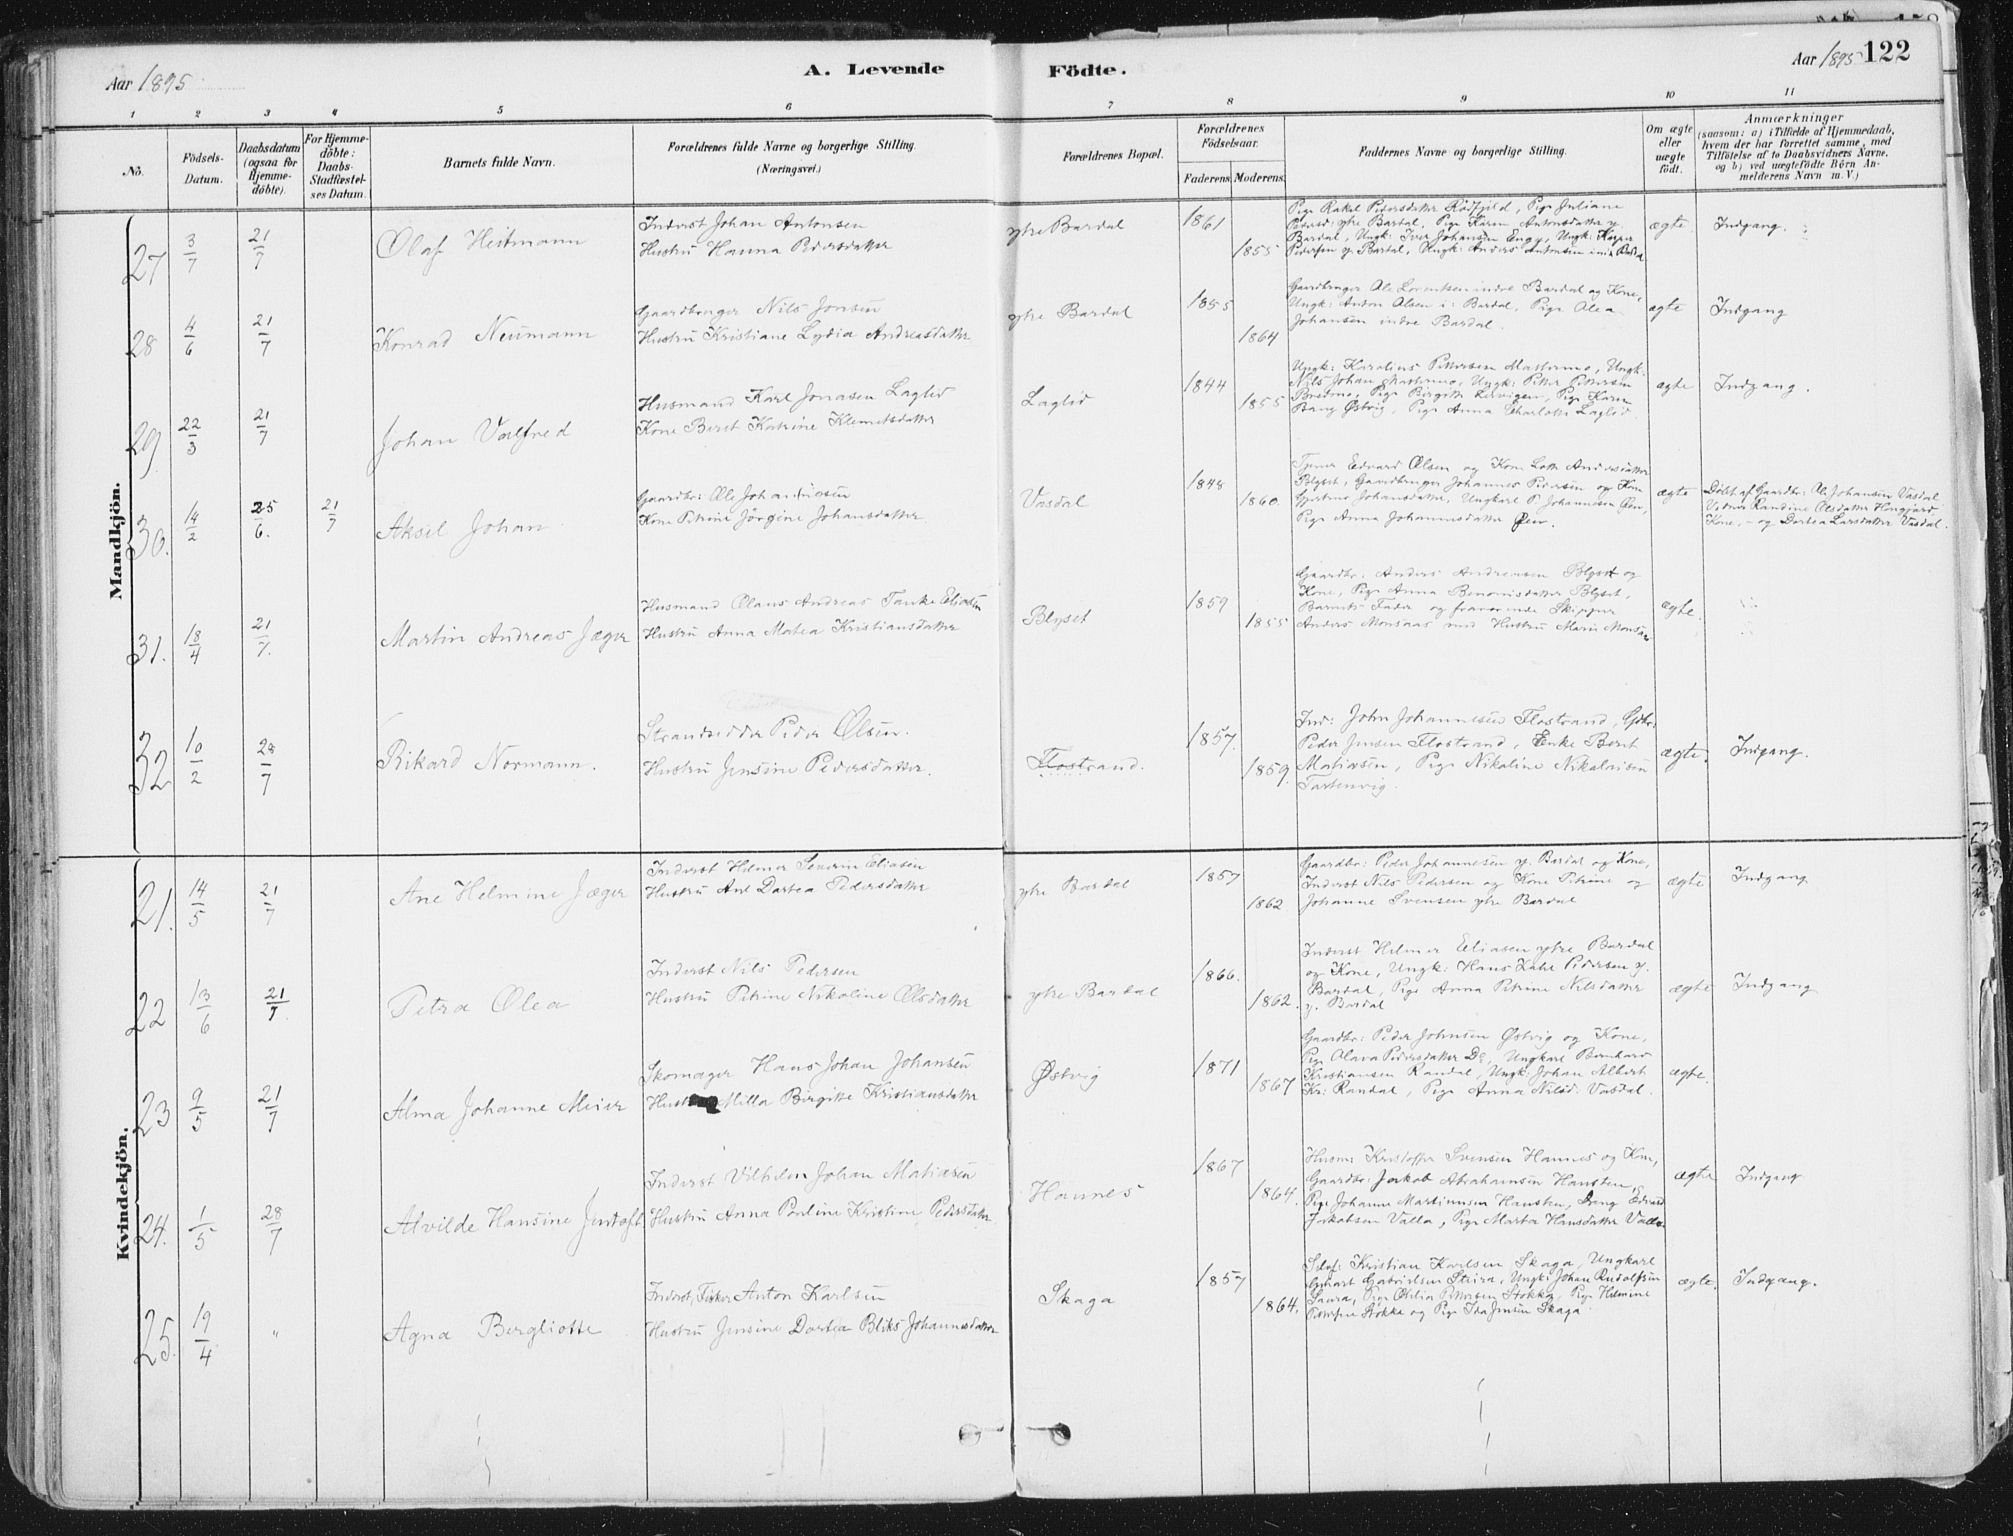 Aar 1895
A. Levende Födte.
Aar 1895 122
1 2 3 4 5 6 7 8 9 10 11
No.
Födsels-Datum.
Daabsdatum (ogsaa for Hjemme-döbte).
For Hjemme-döbte: Daabs-Stadfæstel-ses Datum.
Barnets fulde Navn.
Forældrenes fulde Navne og borgerlige Stilling. (Næringsvei.)
Forældrenes Bopæl.
Forældrenes Födselsaar.
Faderens. Moderens.
Faddernes Navne og borgerlige Stilling.
Om ægte eller uægte födt.
Anmærkninger
(saasom: a) i Tilfælde af Hjemmedaab,
hvem der har forrettet samme, med
Tilföielse af to Daabsvidners Navne.
og b) ved uægtefödte Börn An-
melderens Navn m. V.)
Mandkjön.
27 3/7 21/7 Olaf Heitmann
Inderst Johan Antonsen
Hustru Hanna Pedersdatter
ytre Bardal 1861 1855
Pige Rakel Pedersdatter Rödfjeld, Pige Juliane
Pedersd: ytre Bardal, Pige Karen Antonsdatter y.
Bardal, Ungk: Iver Johansen Engy, Ungk: Kasper
Pedersen y. Bardal, Ungk: Anders Antonsen indre Bardal
ægte Indgang.
28 4/6 21/7 Konrad Neumann
Gaardbruger Nils Jonsen
Hustru Kristiane Lydia Andreasdatter
ytre Bardal 1855 1864
Gaardbruger Ole Lorentsen indre Bardal og Kone,
Ungk: Anton Olsen i: Bardal, Pige Olea
Johansen indre Bardal.
ægte Indgang
29. 22/3 21/7 Johan Valfred
Husmand Karl Jonasen Laglid
Kone Berit Katrine Klemetsdatter
Laglid 1844 1855
Ungk: Karolius Pettersen Mastermo, Ungk.
Nils Johan Mastermo, Ungk: Petter Pettersen
Bredmo, Pige Birgitte Leirvigen, Pige Karen
Bang Østvig, Pige Anna Charlotte Laglid.
ægte Indgang.
30. 14/2 25/6. 21/7 Aksel Johan
Gaardbr: Ole Johan Johansen
Kone Petrine Jörgine Johansdatter
Vasdal 1848 1860.
Edvard Olsen og Kone Andersdatter
Blyset, Gaardbruger Johannes Pedersen og Kone
Gjertrud Johansdatter, Ungkarl P. Johannesen Øen,
Pige Anna Johannesdatter Øen.
ægte
Döbt af Gaardbr: Ole Johansen Vasdal
Vidner Randine Olsdatter Hongjord
Kone, – og Dortea Larsdatter Vasdal.
31. 18/4 21/7. Martin Andreas Jæger
Husmand Olaus Andreas Tanke Eliasen
Hustru Anna Matea Kristiansdatter
Blyset 1859 1855
Gaardbr: Anders Andreasen Blyset og
Kone, Pige Anna Benonisdatter Blyset,
Barnets Fader og fraværende Skipper
Anders Monsaas med Hustru Marie Monsaas
ægte.
32 10/2 28/7 Rikard Normann.
Strandsidder Peder Olsen.
Hustru Jensine Pedersdatter.
Flostrand. 1857. 1859.
Ind: John Johannesen Flostrand, Gbr:
Peder Jensen Flostrand, Enke Berit
Matiasen, Pige Nikoline Nikolaisen
ægte. Indgang.
Kvindekjön.
21. 14/5 21/7 Ane Helmine Jæger
Inderst Helmer Severin Eliasen
Hustru Ane Dortea Pedersdatter
ytre Bardal 1857 1862
Gaardbr: Peder Johannesen y. Bardal og Kone,
Inderst Nils Pedersen og Kone Petrine og
Johanne Svensen ytre Bardal
ægte Indgang
22 13/6 21/7 Petra Olea
Inderst Nils Pedersen
Hustru Petrine Nikoline Olsdatter
ytre Bardal 1866. 1862.
Inderst Helmer Eliasen ytre Bardal
og Kone, Ungk: Hans Pedersen y.
Bardal, Pige Anna Petrine Nilsdatter
y. Bardal
ægte Indgang
23 9/5 21/7 Alma Johanne Meier
Skomager Hans Johan Johansen
Milla Birgitte Kristiansdatter
Østvig 1871 1867
Gaardbr: Peder Johnsen Østvig og Kone,
Pige Olava Pedersdatter Do, Ungkarl Bernhard
Kristiansen Randal, Ungk: Johan Albert
Kr: Randal, Pige Anna Nilsd: Vasdal.
ægte.
24. 1/5 28/7 Alvilde Hansine Jentoft
Inderst Vilhelm Johan Matiasen
Hustru Anna Pauline Kristine Pedersdatter
Hannes 1867 1864.
Husm: Kristoffer Svensen Hannes og Kone,
Gaardbr: Jakob Abrahamsen Hansten,
Pige Johanne Martinusen Hansten, Dreng Edvard
Jakobsen Valla, Pige Marta Hansdatter Valla.
ægte Indgang
25. 19/4 " Agna Bergliotte
Inderst, Fisker Anton Karlsen
Hustru Jensine Dortea Bliks Johannesdatter
Skaga 1857 1864.
Kristian Karlsen Skaga, Ungkarl
Gabrielsen Steira, Ungk: Johan Rudolfsen
Saura, Pige Otilia Pettersen Stokka, Pige Helmine
Pettersen Stokka og Pige Ida Jensen Skaga.
ægte. Indgang.